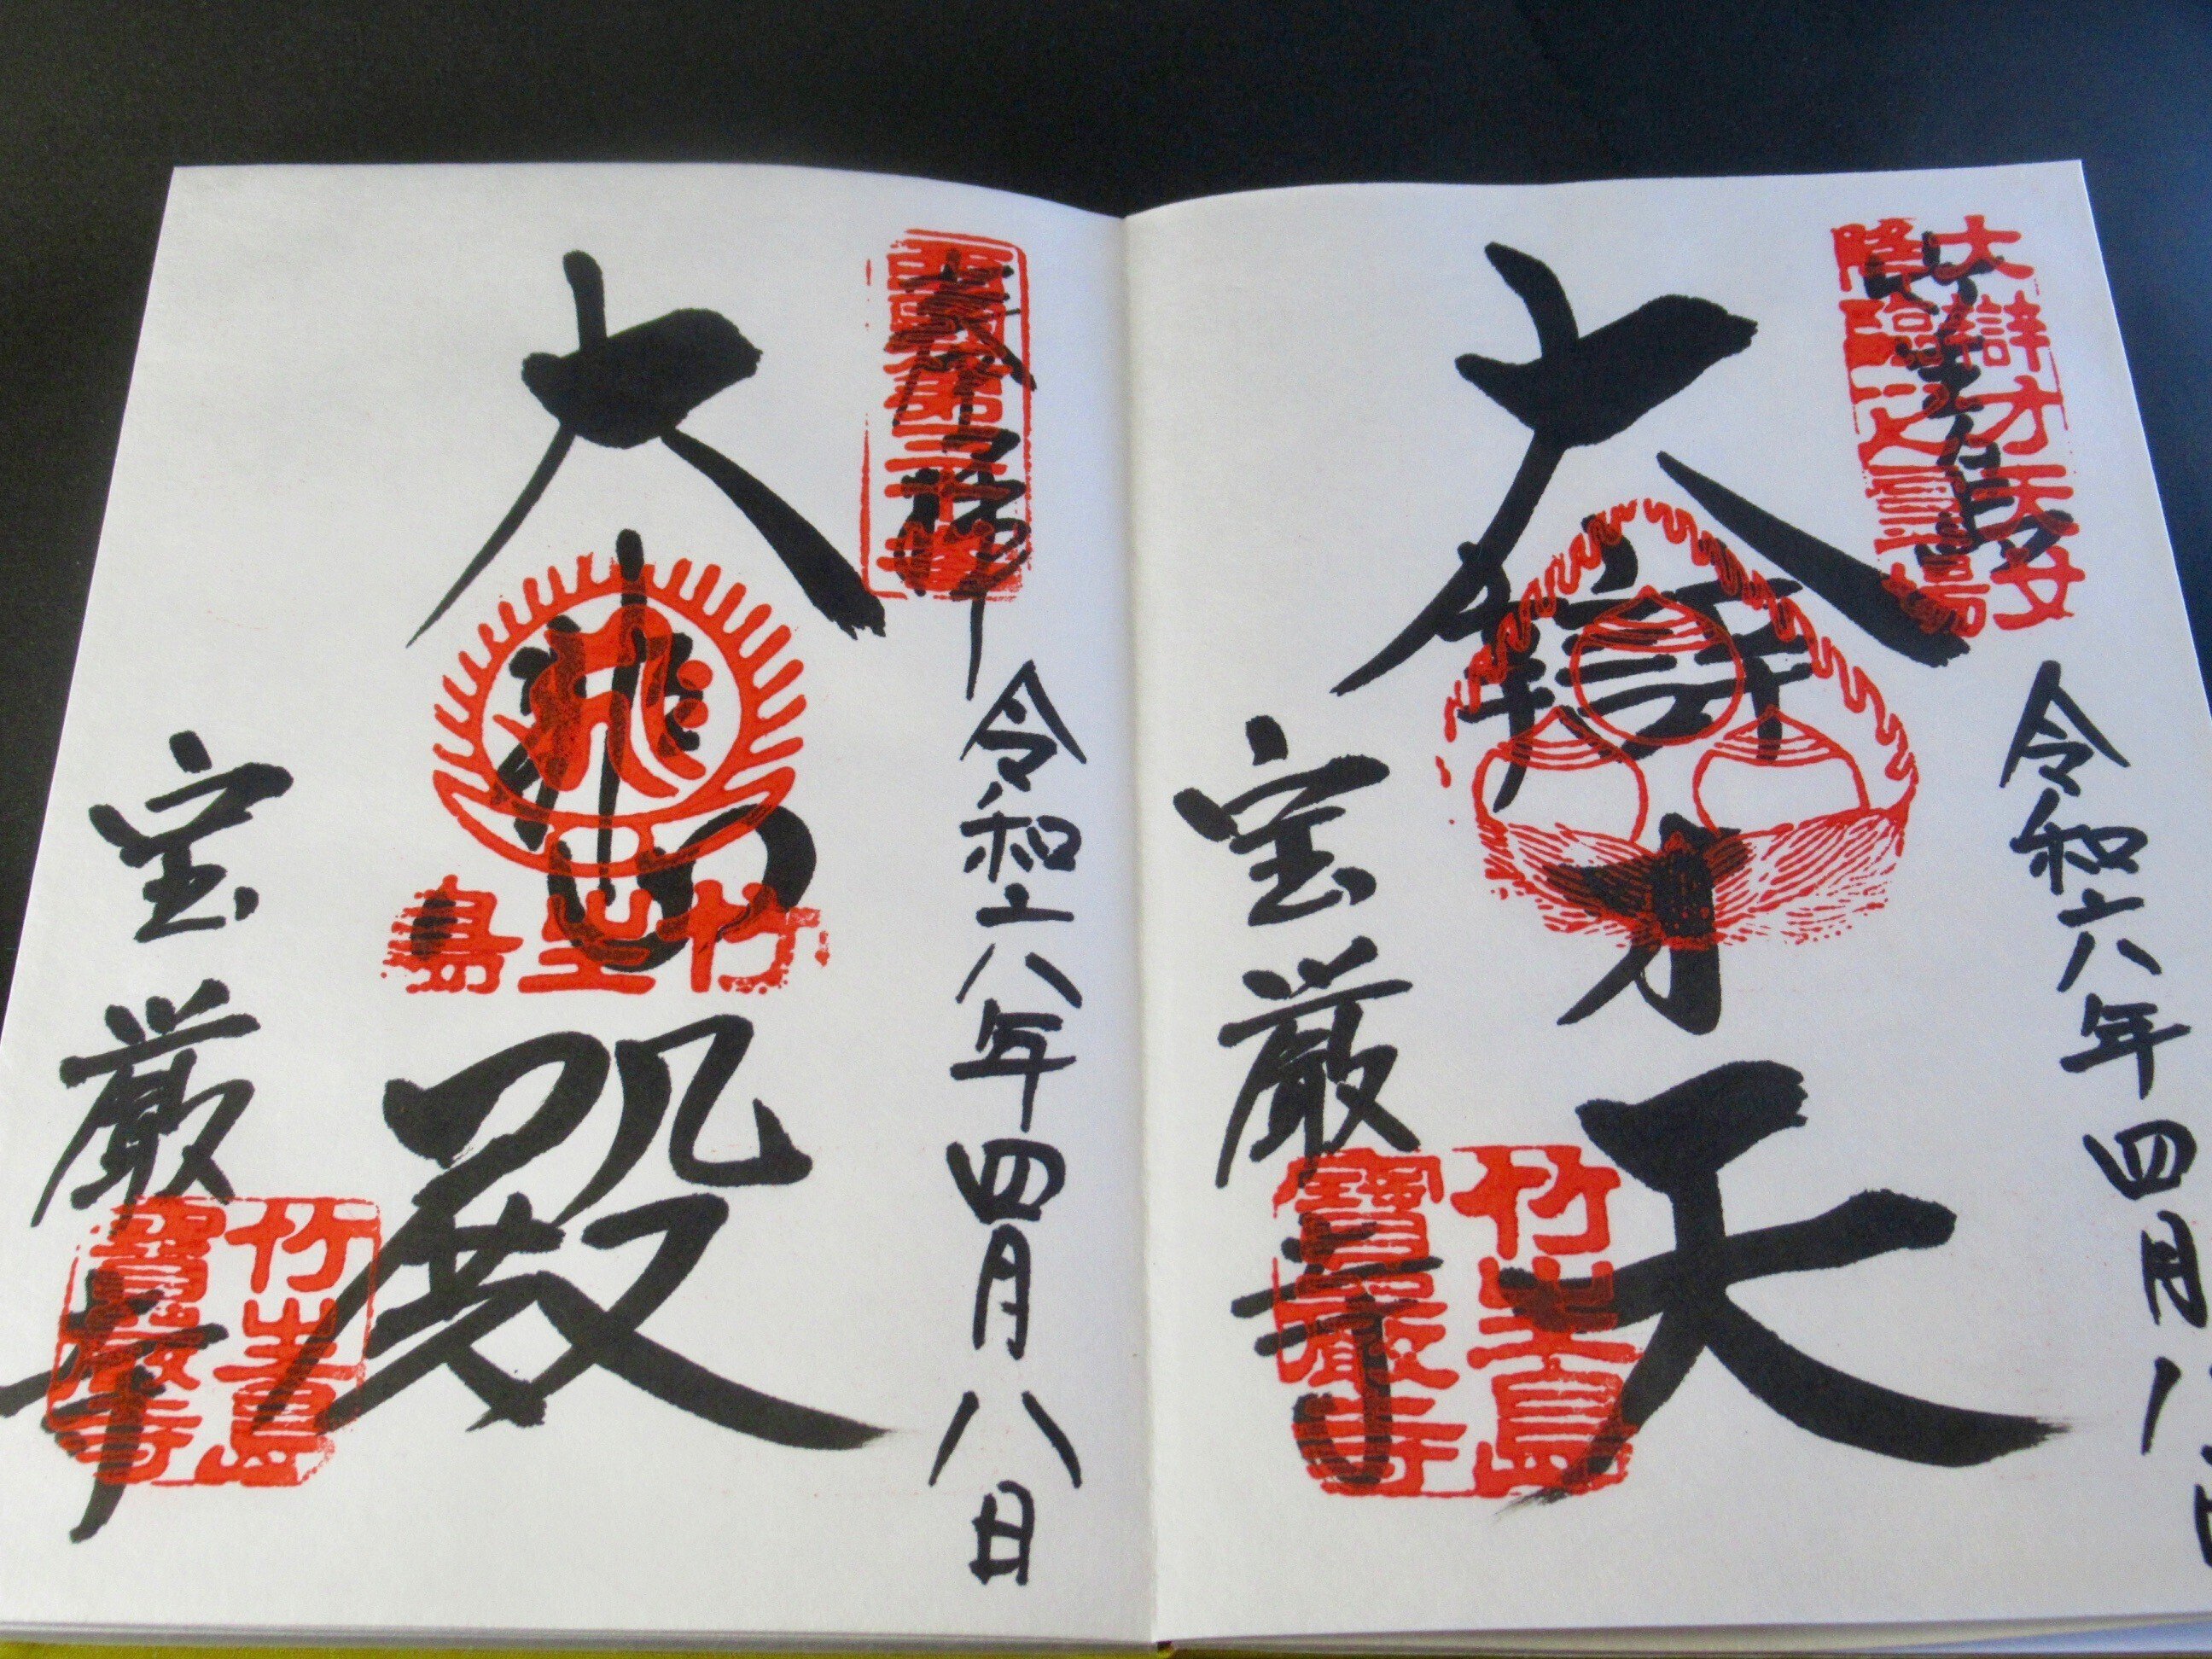 大辯才天女
降臨之靈場
令和六年四月八日
大辯才天
宝厳寺
竹生島
寶嚴寺
西國第三十番
奉拝
令和六年四月八日
大悲殿
竹生島
宝厳寺
竹生島
寶嚴寺